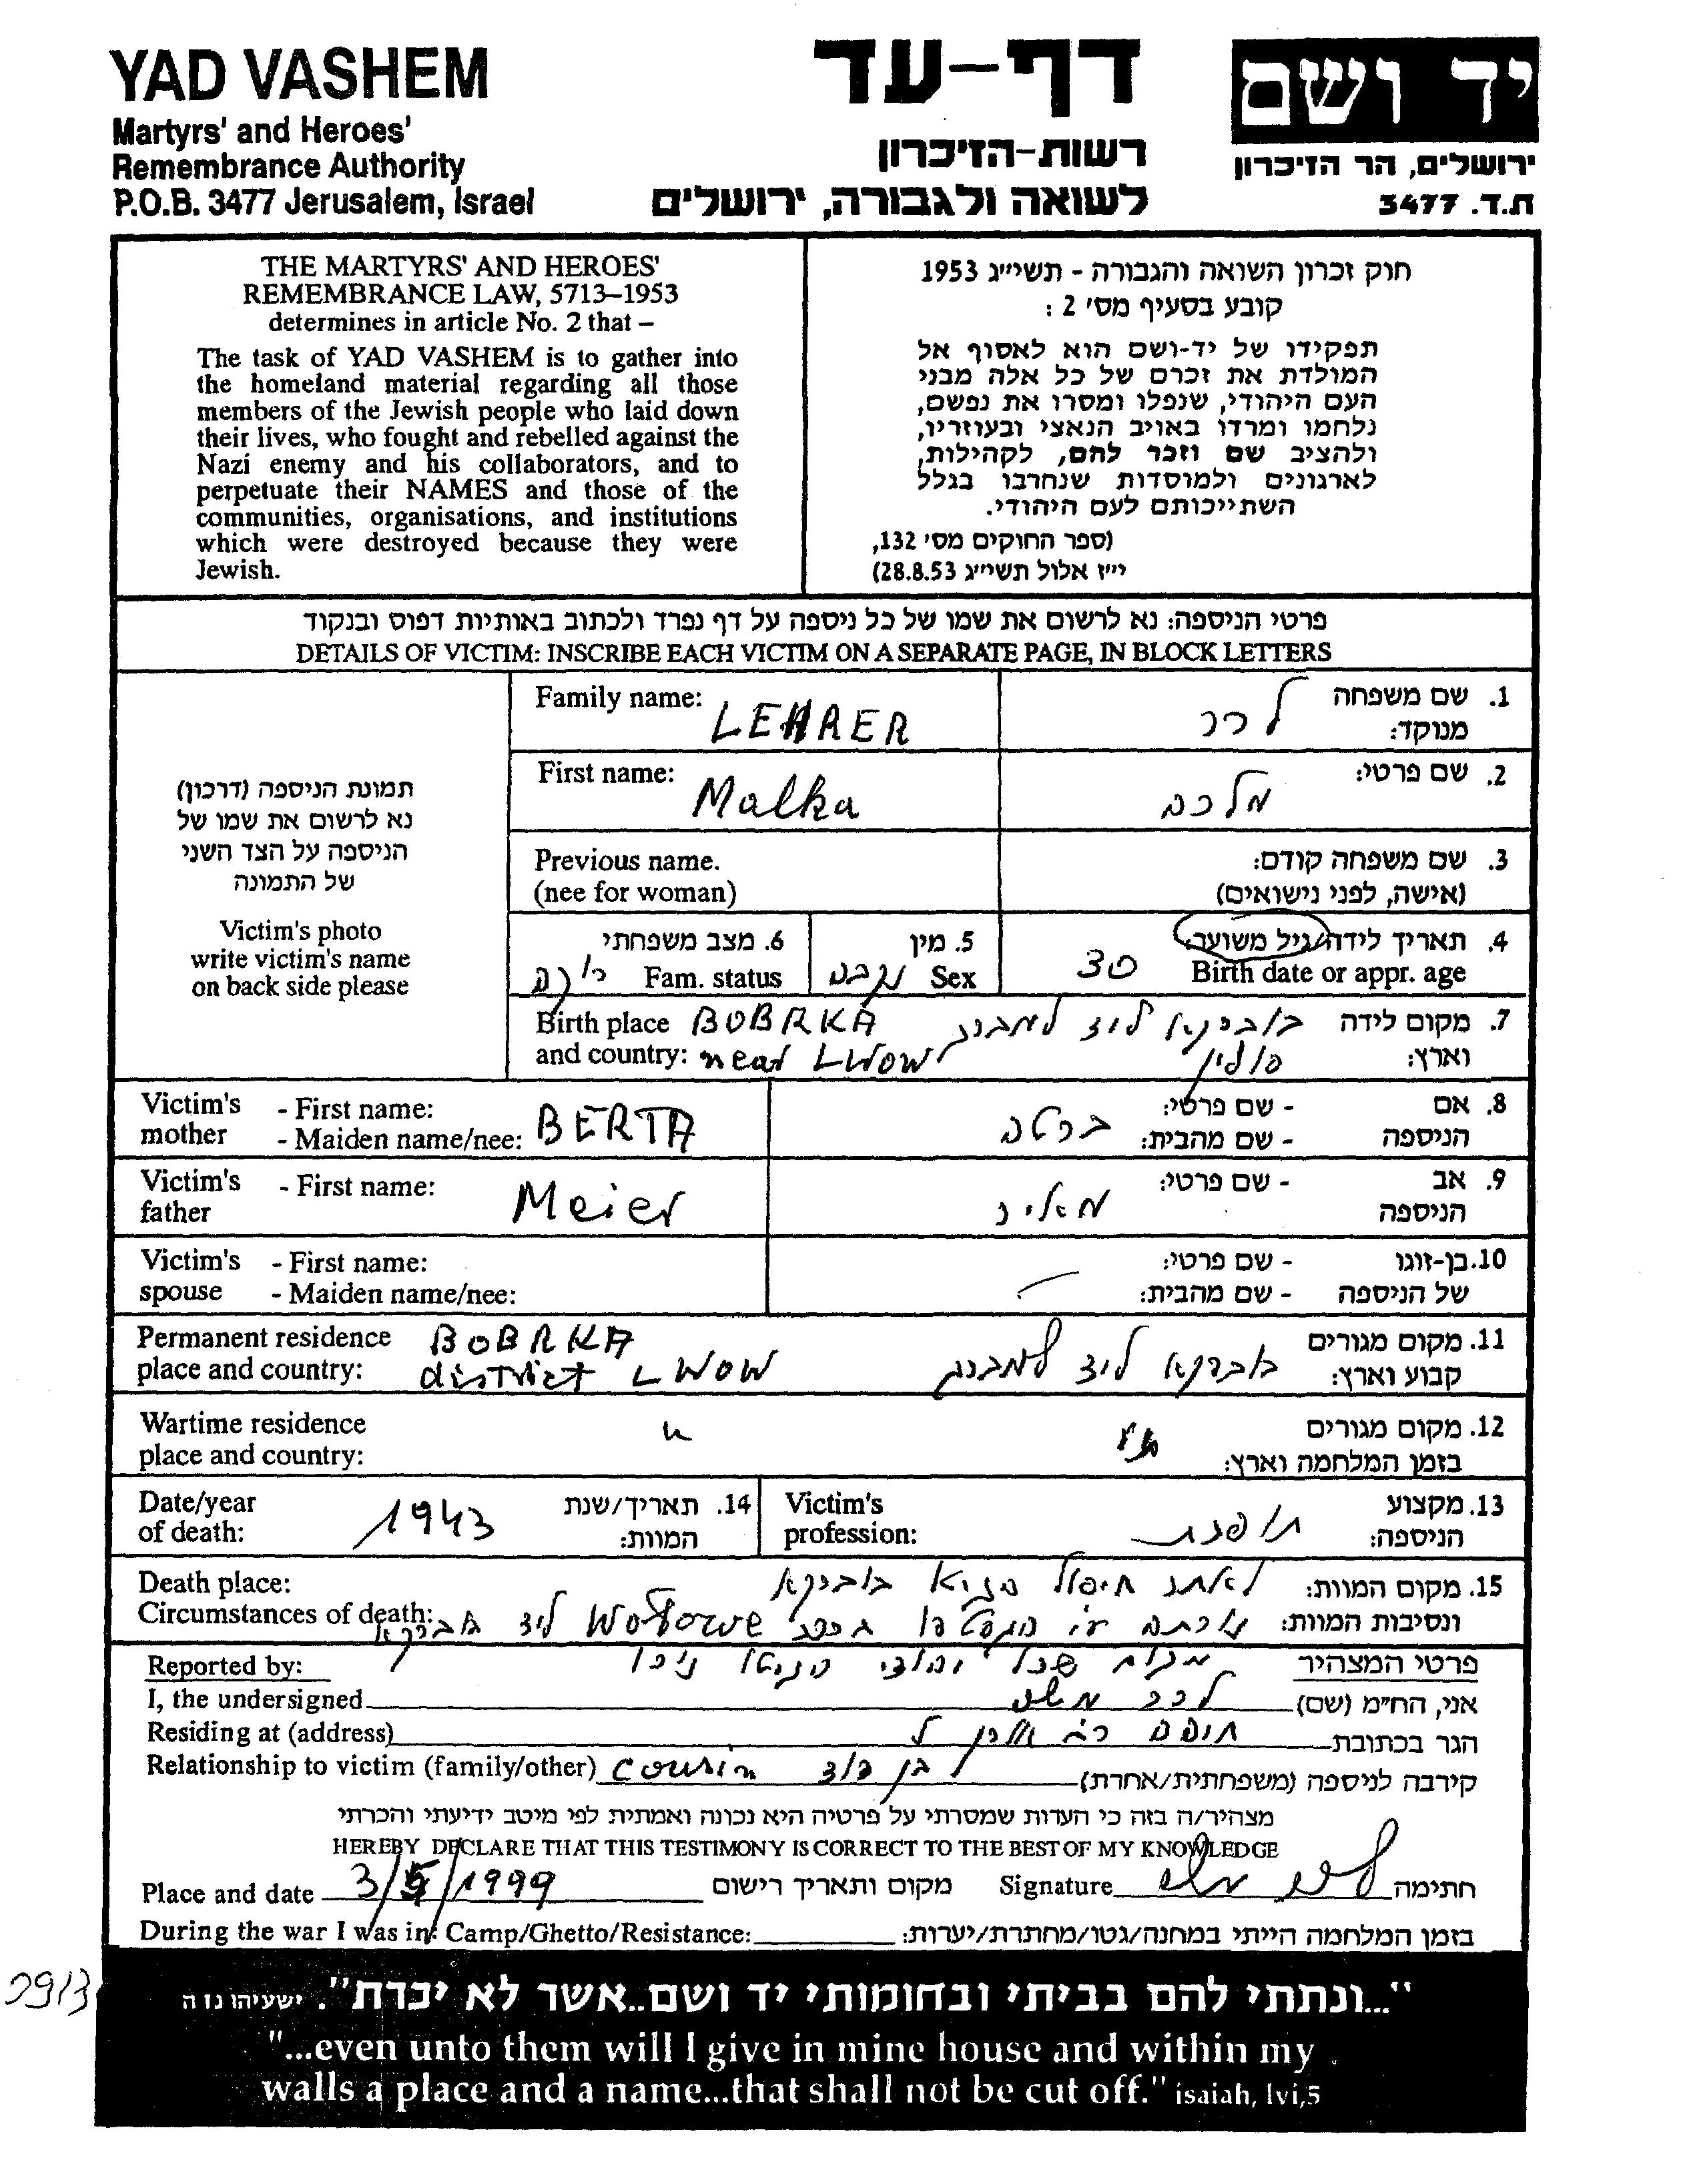 YAD VASHEM
Martyrs' and Heroes'
Remembrance Authority
P.O.B. 3477 Jerusalem, Israel
דף-עד
רשות-הזיכרון
לשואה ולגבורה, ירושלים
יד ושם
ירושלים, הר הזיכרון
ת.ד. 3477
THE MARTYRS' AND HEROES'
REMEMBRANCE LAW, 5713–1953
determines in article No. 2 that –
The task of YAD VASHEM is to gather into
the homeland material regarding all those
members of the Jewish people who laid down
their lives, who fought and rebelled against the
Nazi enemy and his collaborators, and to
perpetuate their NAMES and those of the
communities, organisations, and institutions
which were destroyed because they were
Jewish.
חוק זכרון השואה והגבורה - תשי״ג 1953
קובע בסעיף מס' 2 :
תפקידו של יד-ושם הוא לאסוף אל
המולדת את זכרם של כל אלה מבני
העם היהודי, שנפלו ומסרו את נפשם,
נלחמו ומרדו באויב הנאצי ובעוזריו,
ולהציב שם וזכר להם, לקהילות,
לארגונים ולמוסדות שנחרבו בגלל
השתייכותם לעם היהודי.
(ספר החוקים מס' 132,
י״ז אלול תשי״ג 28.8.53)
פרטי הניספה: נא לרשום את שמו של כל ניספה על דף נפרד ולכתוב באותיות דפוס ובנקוד
DETAILS OF VICTIM: INSCRIBE EACH VICTIM ON A SEPARATE PAGE, IN BLOCK LETTERS
תמונת הניספה (דרכון)
נא לרשום את שמו של
הניספה על הצד השני
של התמונה
Victim's photo
write victim's name
on back side please
Family name: LEHRER לרר 1. שם משפחה
מנוקד:
First name: Malka מלכה 2. שם פרטי:
Previous name. 3. שם משפחה קודם:
(nee for woman) (אישה, לפני נישואים)
6. מצב משפחתי 5. מין 4. תאריך לידה/גיל משוער
Fam. status רווקה Sex נקבה Birth date or appr. age 30
Birth place BOBRKA בוברקא ליד למברג 7. מקום לידה
and country: near LWOW פולין וארץ:
Victim's - First name: BERTA ברטה - שם פרטי: 8. אם
mother - Maiden name/nee: - שם מהבית: הניספה
Victim's - First name: Meier מאיר - שם פרטי: 9. אב
father הניספה
Victim's - First name: - שם פרטי: 10. בן-זוגו
spouse - Maiden name/nee: - שם מהבית: של הניספה
Permanent residence BOBRKA 11. מקום מגורים
place and country: district LWOW בוברקא ליד למברג קבוע וארץ:
Wartime residence 12. מקום מגורים
place and country: בזמן המלחמה וארץ:
Date/year 1943 14. תאריך/שנת Victim's תופרת 13. מקצוע
of death: המוות: profession: הניספה:
Death place: לאחר חיסול גטו בוברקא 15. מקום המוות:
Circumstances of death: ונסיבות המוות:
Reported by: פרטי המצהיר
I, the undersigned לרר משה אני, החי״מ (שם)
Residing at (address) הגר בכתובת
Relationship to victim (family/other) cousin בן דוד קירבה לניספה (משפחתית/אחרת)
מצהיר/ה בזה כי העדות שמסרתי על פרטיה היא נכונה ואמתית לפי מיטב ידיעתי והכרתי
HEREBY DECLARE THAT THIS TESTIMONY IS CORRECT TO THE BEST OF MY KNOWLEDGE
Place and date 3/5/1999 מקום ותאריך רישום Signature חתימה
During the war I was in: Camp/Ghetto/Resistance: בזמן המלחמה הייתי במחנה/גטו/מחתרת/יערות:
"...ונתתי להם בביתי ובחומותי יד ושם..אשר לא יכרת". ישעיהו נו ה
"...even unto them will I give in mine house and within my
walls a place and a name...that shall not be cut off." isaiah, lvi,5